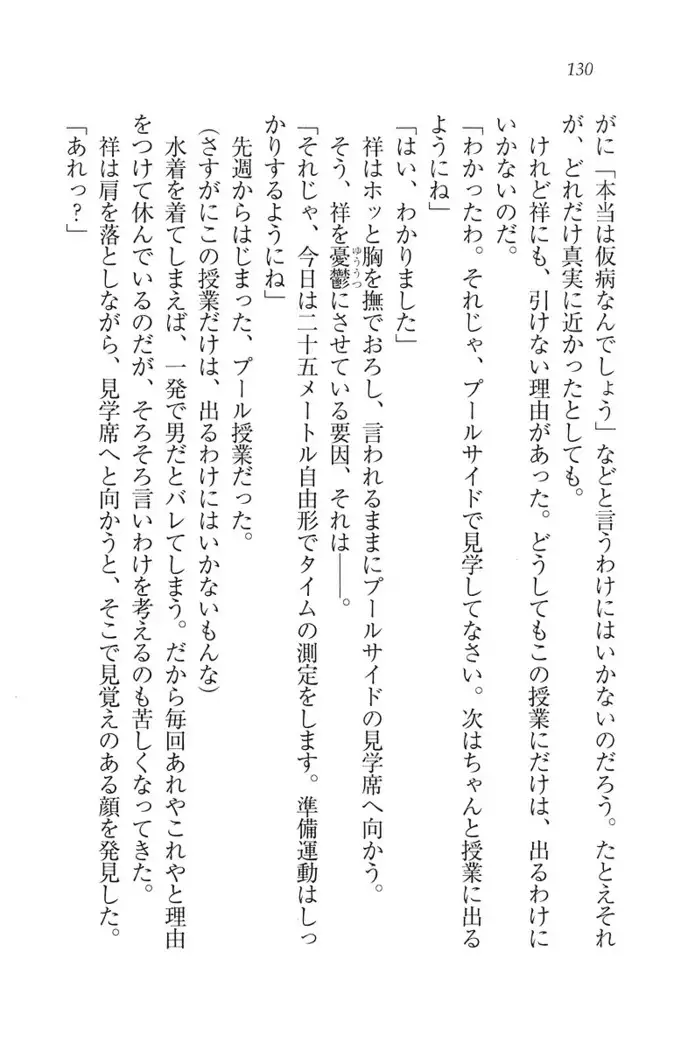 130
がに「本当は仮病なんでしょう」などと言うわけにはいかないのだろう。たとえそれ
が、どれだけ真実に近かったとしても。
けれど祥にも、引けない理由があった。どうしてもこの授業にだけは、出るわけに
いかないのだ。
「わかったわ。それじゃ、プールサイドで見学してなさい。次はちゃんと授業に出る
ようにね」
「はい、わかりました」
祥はホッと胸を撫でおろし、言われるままにプールサイドの見学席へ向かう。
そう、祥を憂鬱にさせている要因、それは――。
ゆううつ
「それじゃ、今日は二十五メートル自由形でタイムの測定をします。準備運動はしっ
かりするようにね」
先週からはじまった、プール授業だった。
(さすがにこの授業だけは、出るわけにはいかないもんな)
水着を着てしまえば、一発で男だとバレてしまう。だから毎回あれやこれやと理由
をつけて休んでいるのだが、そろそろ言いわけを考えるのも苦しくなってきた。
祥は肩を落としながら、見学席へと向かうと、そこで見覚えのある顔を発見した。
「あれっ？」